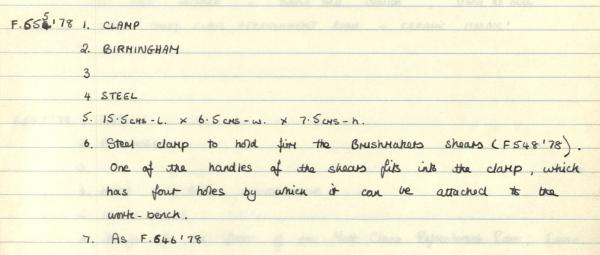 F.655'78 1. CLAMP
2. BIRMINGHAM
3
4 STEEL
5. 15.5cms-L. x 6.5cms-w. x 7.5cms-h.
6. Steel clamp to hold firm the Brushmakers shears (F548'78).
One of the handles of the shears fits into the clamp, which
has four holes by which it can be attached to the
work-bench.
7. As F.646'78